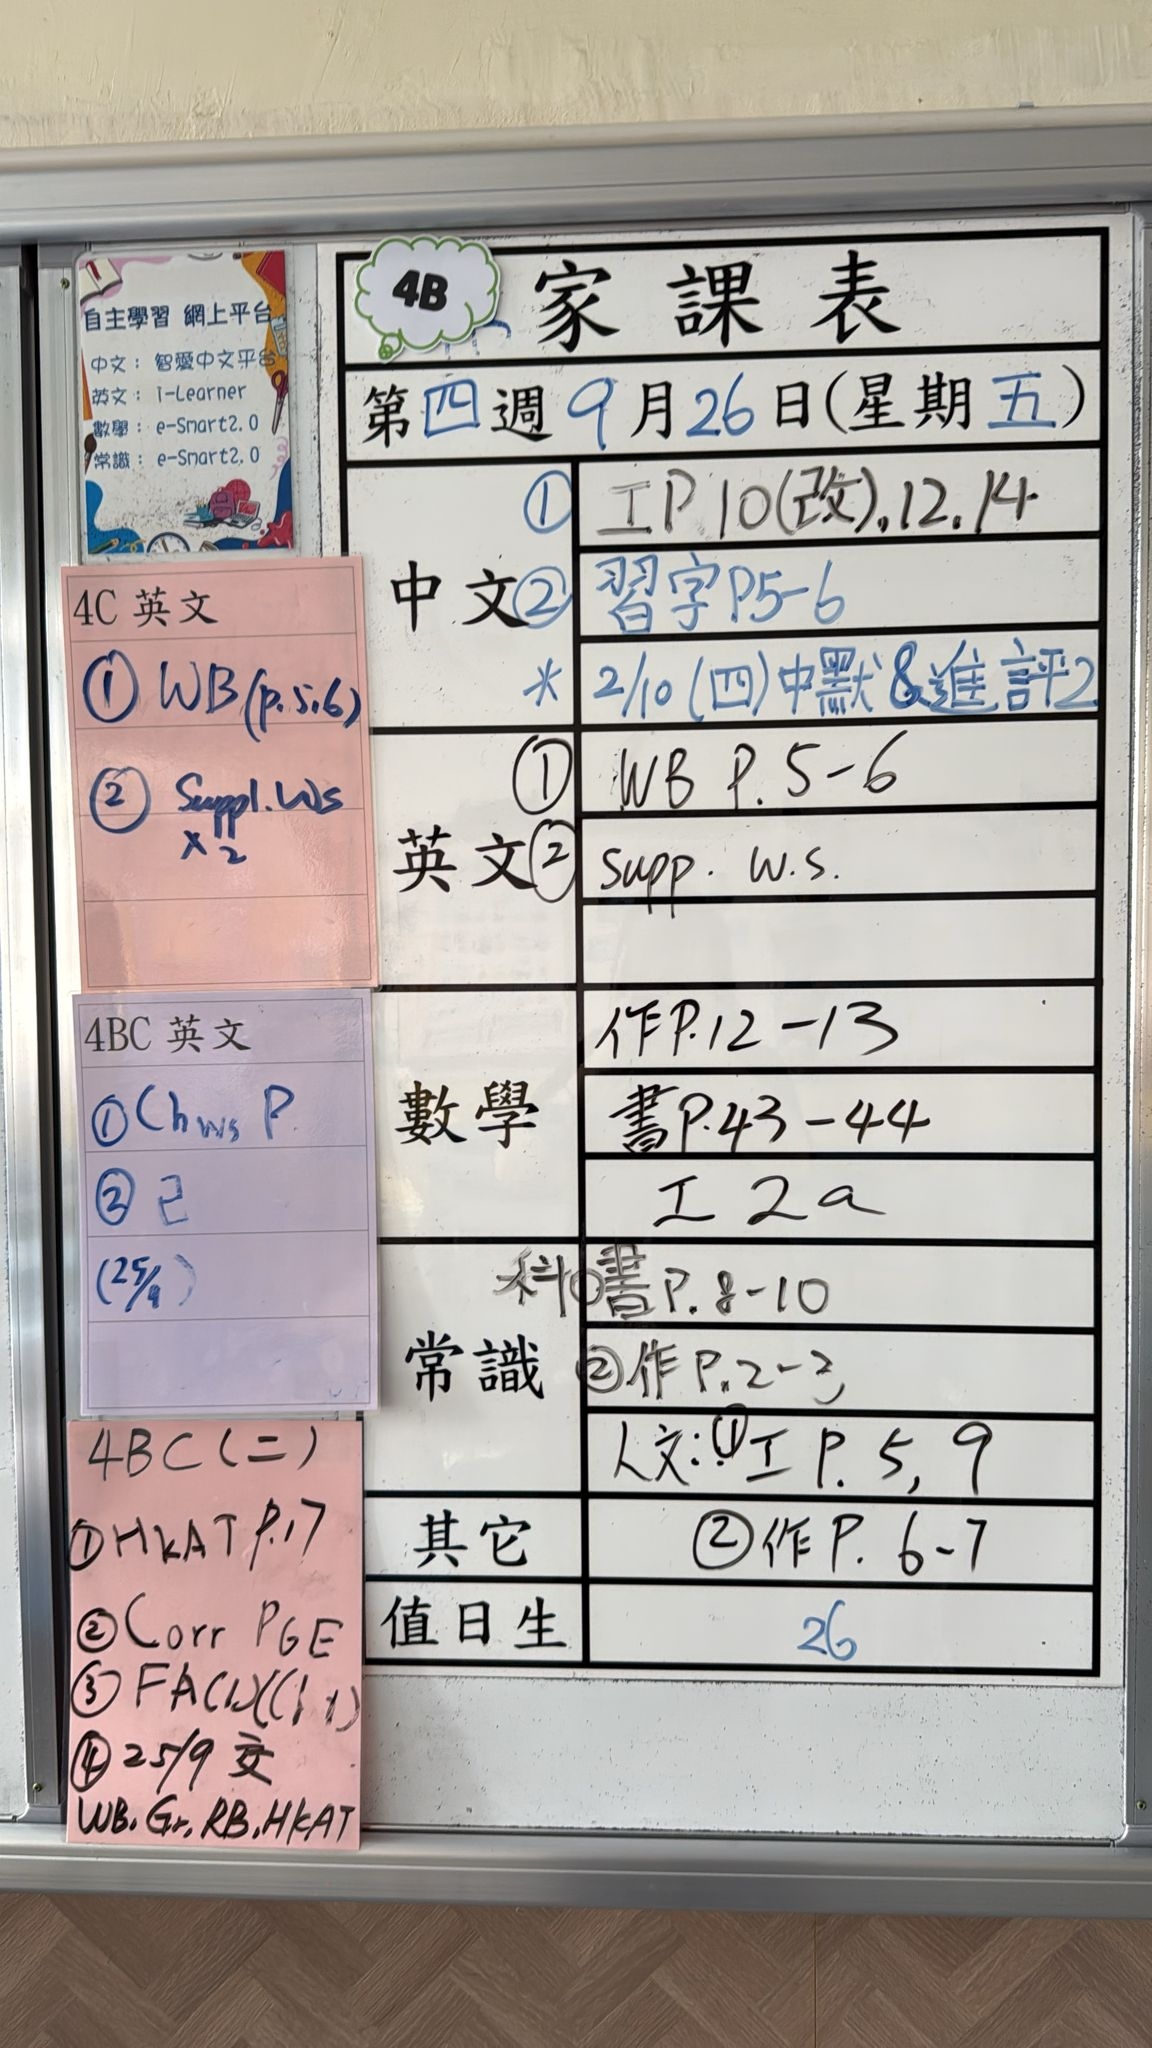 4B
家課表
第四週9月26日(星期五)
中文
① 工P10(改),12,14
② 習字P5-6
* 2/10(四)中默&進評2
英文
① WB P.5-6
② supp. w.s.
數學
作P.12-13
書P.43-44
工2a
常識
科①書P.8-10
②作P.2-3
人文:①工P.5,9
其它
②作P.6-7
值日生
26
自主學習 網上平台
中文: 智愛中文平台
英文: i-Learner
數學: e-Smart2.0
常識: e-Smart2.0
4C 英文
① WB(p.5,6)
② Suppl.Ws
x2
4BC 英文
①Ch ws P.
②
(25/9)
4BC(二)
①HKAT P.17
②Corr PGE
③FA(1)
④25/9交
WB.Gr.RB.HKAT